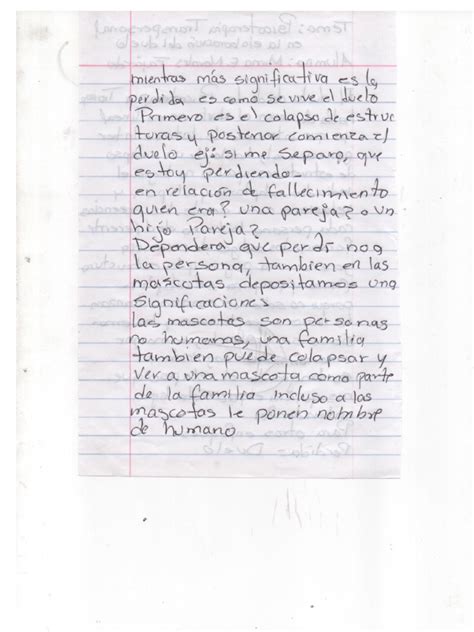 mientras más significativa es la
perdida es como se vive el duelo
Primero es el colapso de estruc
turas y posterior comienza el
duelo ej: si me separo, que
estoy perdiendo-
en relación de fallecimiento
quien era? una pareja? o un
hijo Pareja?
Dependera que perdi no
la persona, tambien en las
mascotas depositamos una
significaciones
las mascotas son personas
no humanas, una familia
tambien puede colapsar y
ver a una mascota como parte
de la familia incluso a las
mascotas le ponen nombre
de humano